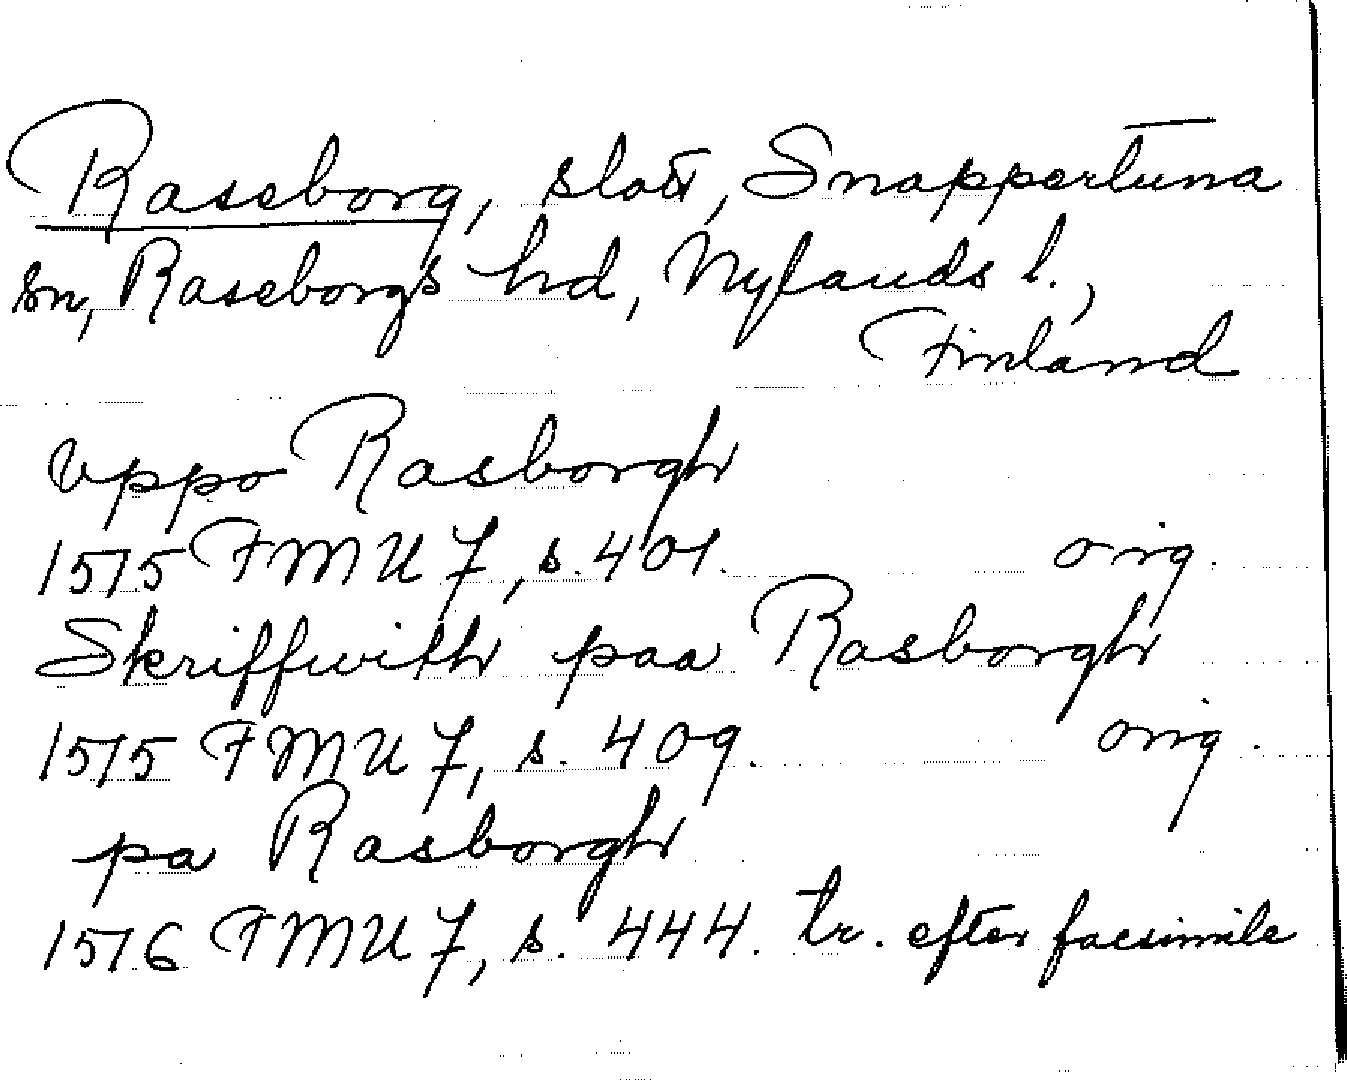 Raseborg, slott, Snappertuna
sn, Raseborgs hd, Nylands l.,
Finland
vppo Rasborgh
1515 FMU 7, s. 401. orig.
Skriffwith paa Rasborgh
1515 FMU 7, s. 409. orig.
pa Rasborgh
1516 FMU 7, s. 444. tr. efter facsimile